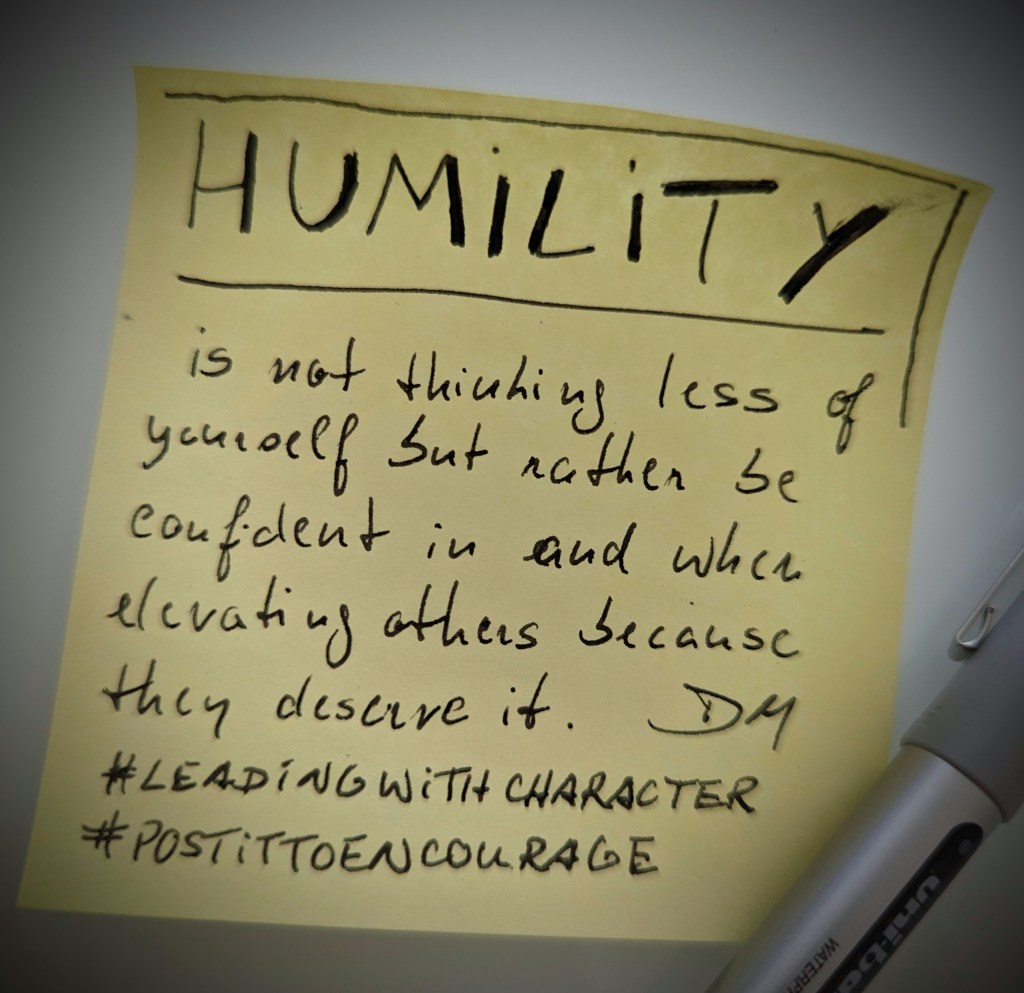 HUMiLiTY
is not thinking less of
yourself but rather be
confident in and when
elevating others because
they deserve it. DM
#LEADiNGWiTHCHARACTER
#POSTiTTOENCOURAGE
uni-ba
WATERP